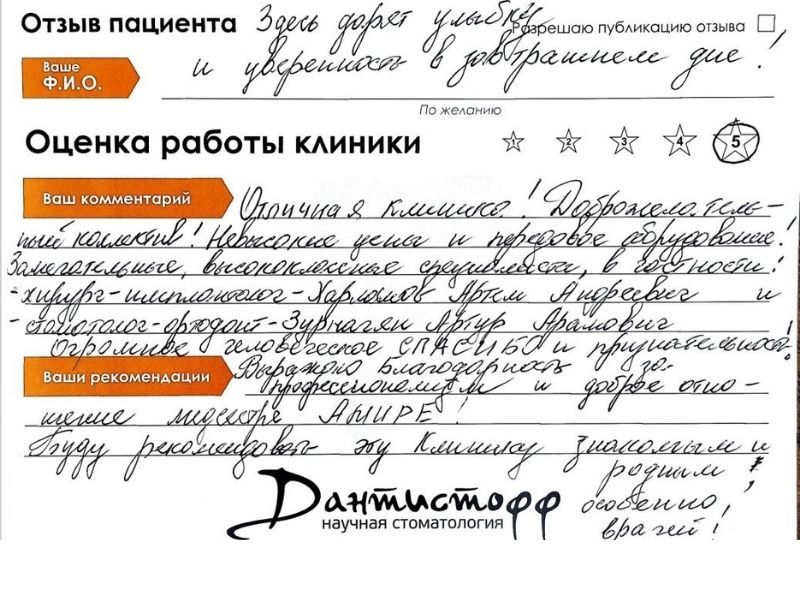 Отзыв пациента Здесь дарят улыбку
Разрешаю публикацию отзыва
Ваше
Ф.И.О.
и уверенность в завтрашнем дне!
По желанию
Оценка работы клиники 1 2 3 4 5
Ваш комментарий Отличная клиника! Доброжелатель-
ный коллектив! Невысокие цены и передовое оборудование!
Замечательные, высококлассные специалисты, в частности!
-хирург-имплантолог-Харламов Артем Андреевич и
-стоматолог-ортодонт-Зурначян Артур Арамович
Огромное человеческое СПАСИБО и признательность!
Ваши рекомендации Выражаю благодарность за
профессионализм и доброе отно-
шение медсестре АМИРЕ!
Буду рекомендовать эту клинику знакомым и
родным,
особенно,
врачей!
Дантистофф
научная стоматология